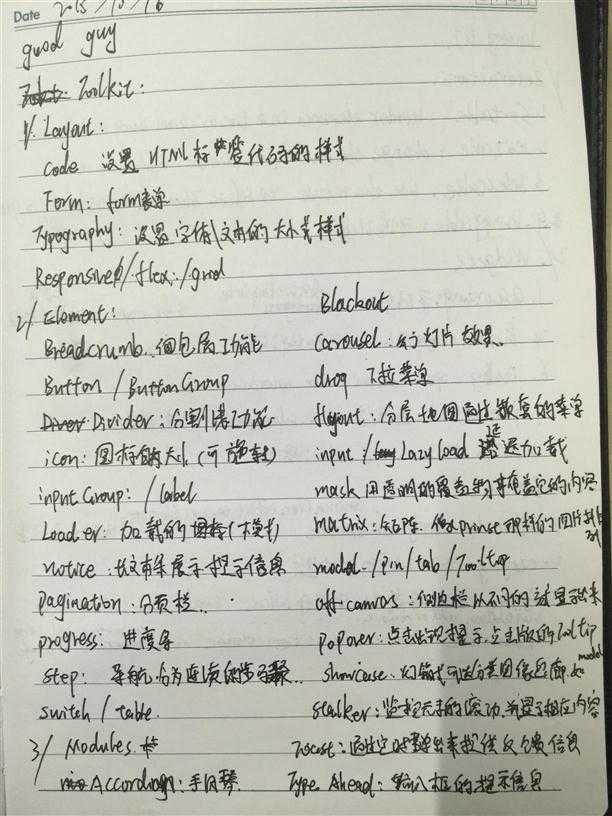 Date 2015/10/16
good guy
Toolkit:
1/. Layout:
Code 设置 HTML标签代码的样式
Form: form表单
Typography: 设置字体\文本的大小或样式
Responsive/flex:/grid
2/ Element:
Breadcrumb 面包屑功能
Button / Button Group
Divider: 分割线功能
icon: 图标的大小(可旋转)
input Group: / label
Loader: 加载的图标(
notice: 以文本条展示提示信息
pagination: 分页栏..
progress: 进度条
step: 导航,分为连续的步骤..
switch / table.
3/ Modules.
Accordion: 手风琴
Blackout
Carousel: 幻灯片效果..
drop 下拉菜单
flyout: 分层地图通过嵌套的菜单
input / Lazy load 延迟加载
mask 用透明的覆盖物来覆盖它的内容
Matrix: 矩阵. 像 那样的图片排列
modal. / Pin / tab / Tooltip
off canvas: 侧边栏从不同的 显示出来
popover: 点击出现提示,点击版的Tooltip
showcase. 幻灯 modal
stalker: 监控元素的滚动,并显示相应内容
Tocast: 通过定时弹出来提供反馈信息
Type Ahead: 输入框的提示信息